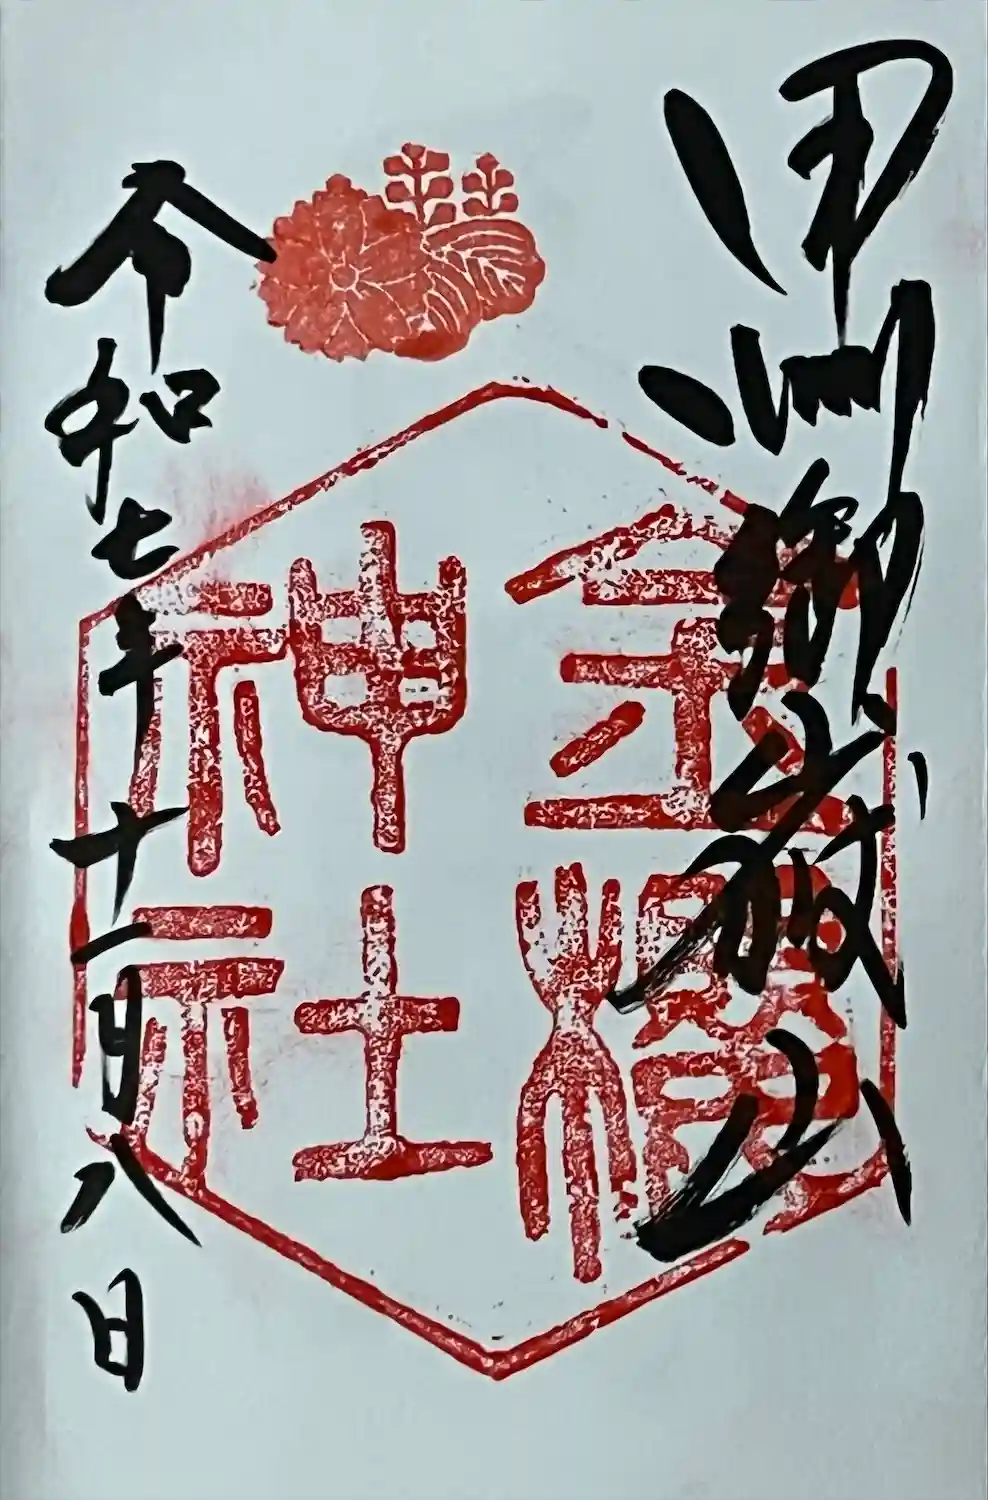 甲州御嶽山
金櫻
神社
令和七年十一月八日